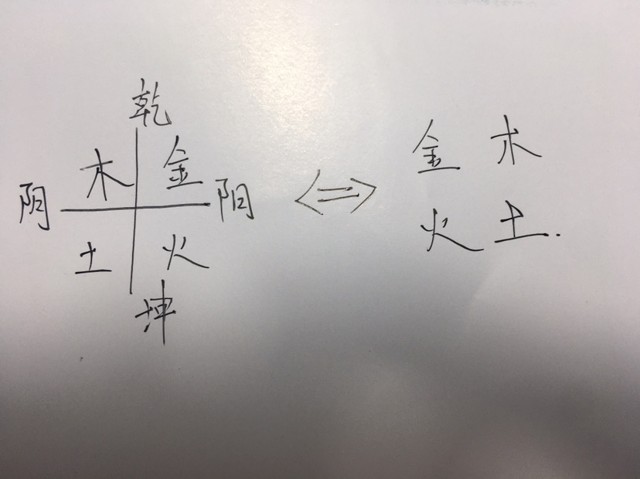 乾
木 金
阴 阳 <=> 金 木
土 火 火 土.
坤